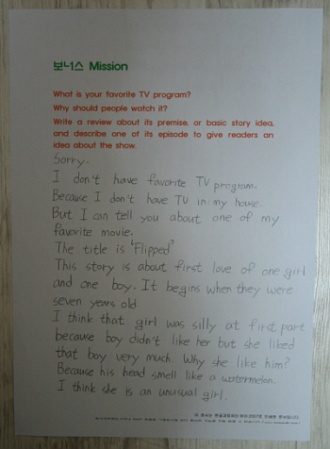 보너스 Mission
What is your favorite TV program?
Why should people watch it?
Write a review about its premise, or basic story idea,
and describe one of its episode to give readers an
idea about the show.
Sorry.
I don't have favorite TV program.
Because I don't have TV in my house.
But I can tell you about one of my
favorite movie.
The title is "Flipped"
This story is about first love of one girl
and one boy. It begins when they were
seven years old
I think that girl was silly at first part
because boy didn't like her but she liked
that boy very much. Why she like him?
Because his head smell like a watermelon.
I think she is an unusual girl.